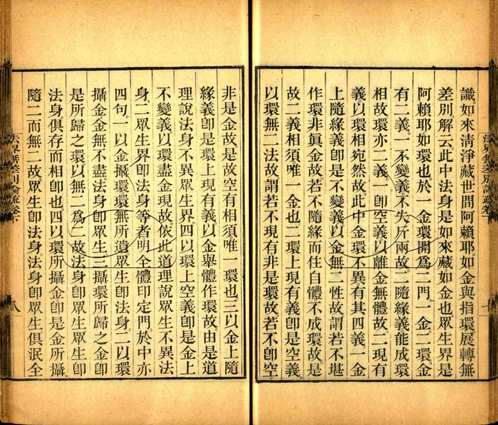 識如來清淨藏世間阿賴耶如金與指環展轉無
差別解云此中法身是如來藏如金也眾生界是
阿賴耶如環也於一金環開為二門一金二環金
有二義一不變義以不失斤兩故二隨緣義能成環
相故環亦二義一體空義以離金無體故二現有
義以環相宛然故此中金環不異有其四義一金
上隨緣義即是不變義以金無二性故謂若不堪
作環非真金故若不隨緣而住自體不成環故是
故二義相須唯一金也二環上現有義即是空義
以環無二法故謂若不現有非是環故若不即空
非是金故是故空有相須唯一環也三以金上隨
緣義即是環上現有義以金舉體作環故由是道
理說法身不異眾界四以環上空義即是金上
不變義以環盡金現故依此道理說眾生不異法
身二眾生界即法身等者明全體印定門於中亦
四句一以金攝環環無所遺眾生即法身二以環
攝金金無不盡法身即眾生三攝環所歸之金即
是所歸之環以無二為二故法身即眾生眾生即
法身俱存而相即也四以環所攝金即是金所攝
隨二而無二故眾生即法身法身即眾生俱泯全
八